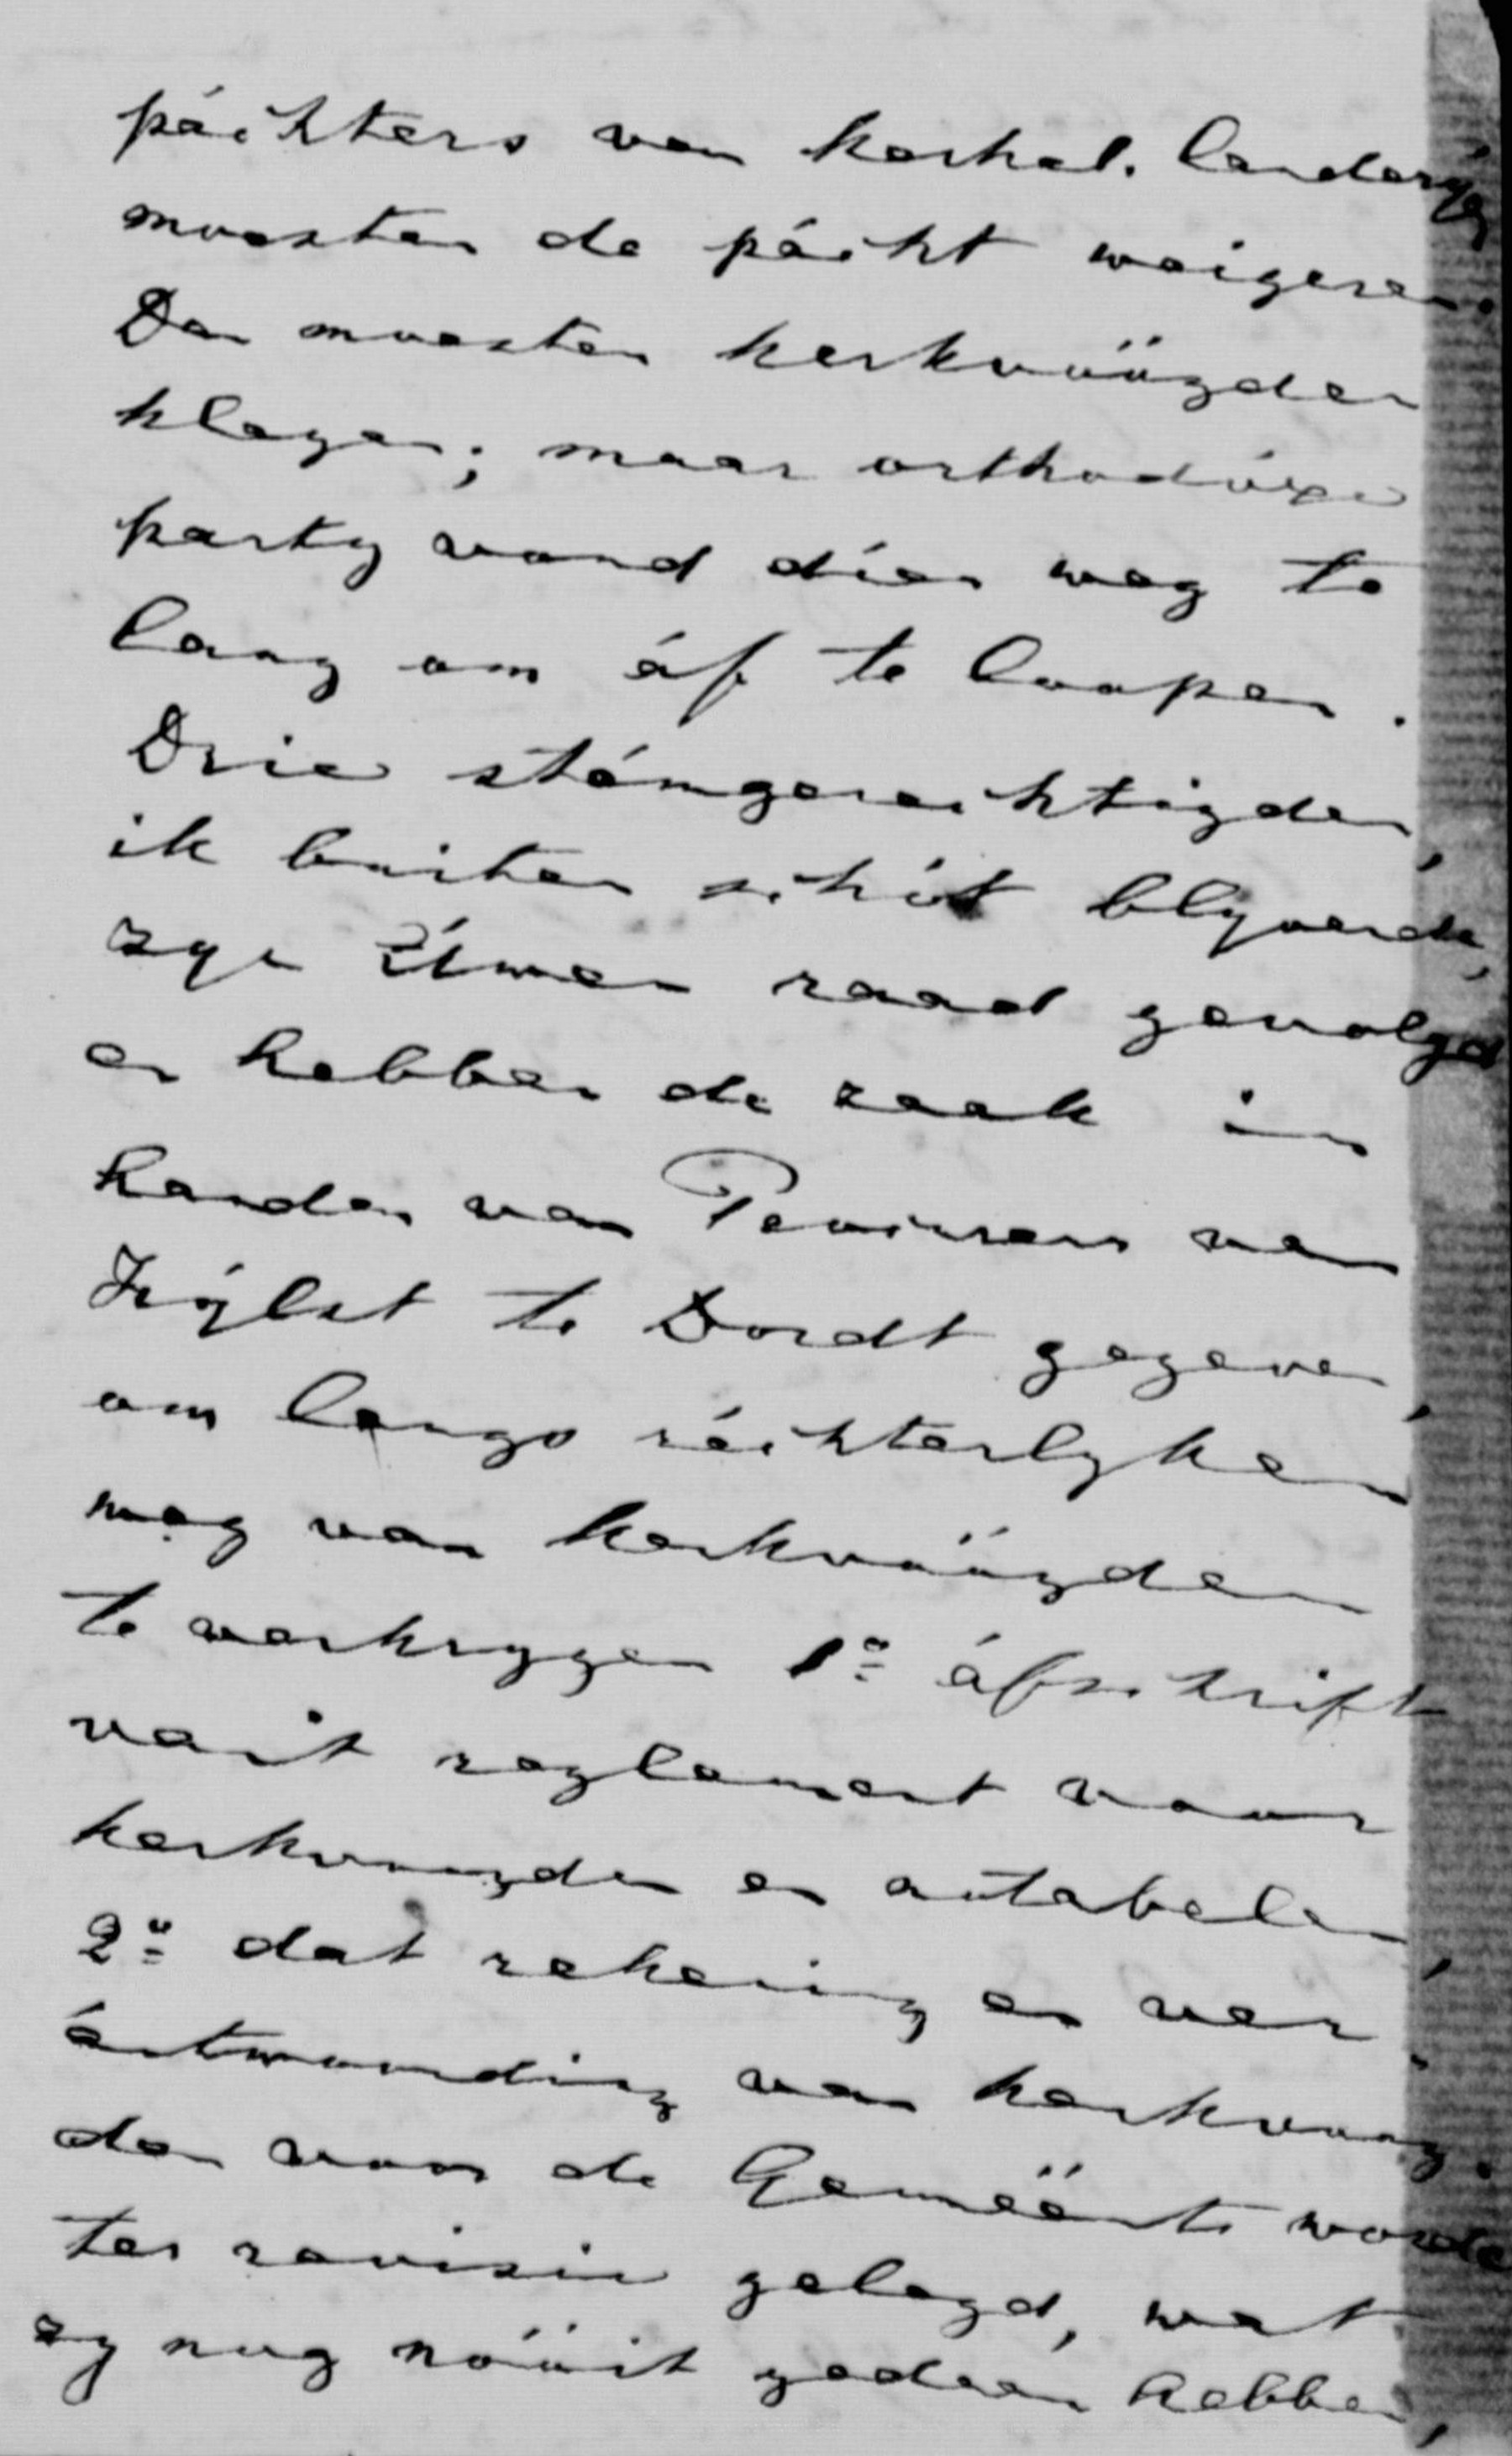 páchters van kerkel. landeryen
moesten de pácht weigeren.
Dan moesten kerkvoögden
klagen; maar orthodóxe
party vond dien weg te
lang om áf te loopen.
Drie stémgerechtigden,
ik buiten schót blyvende,
zyn Uwen raad gevolgd
en hebben de zaak in
handen van van
Zÿlst te Dordt gegeven,
om langs réchterlyken
weg van kerkvoögden
te verkrygen 1º áfschrift
van't reglement voor
kerkvoogden en notabelen,
2º dat rekening en ver-
ántwoording van kerkvoog-
den voor de Gemëënte worde
ter revisie gelegd, wat
zy nog nóóit gedaan hebben,